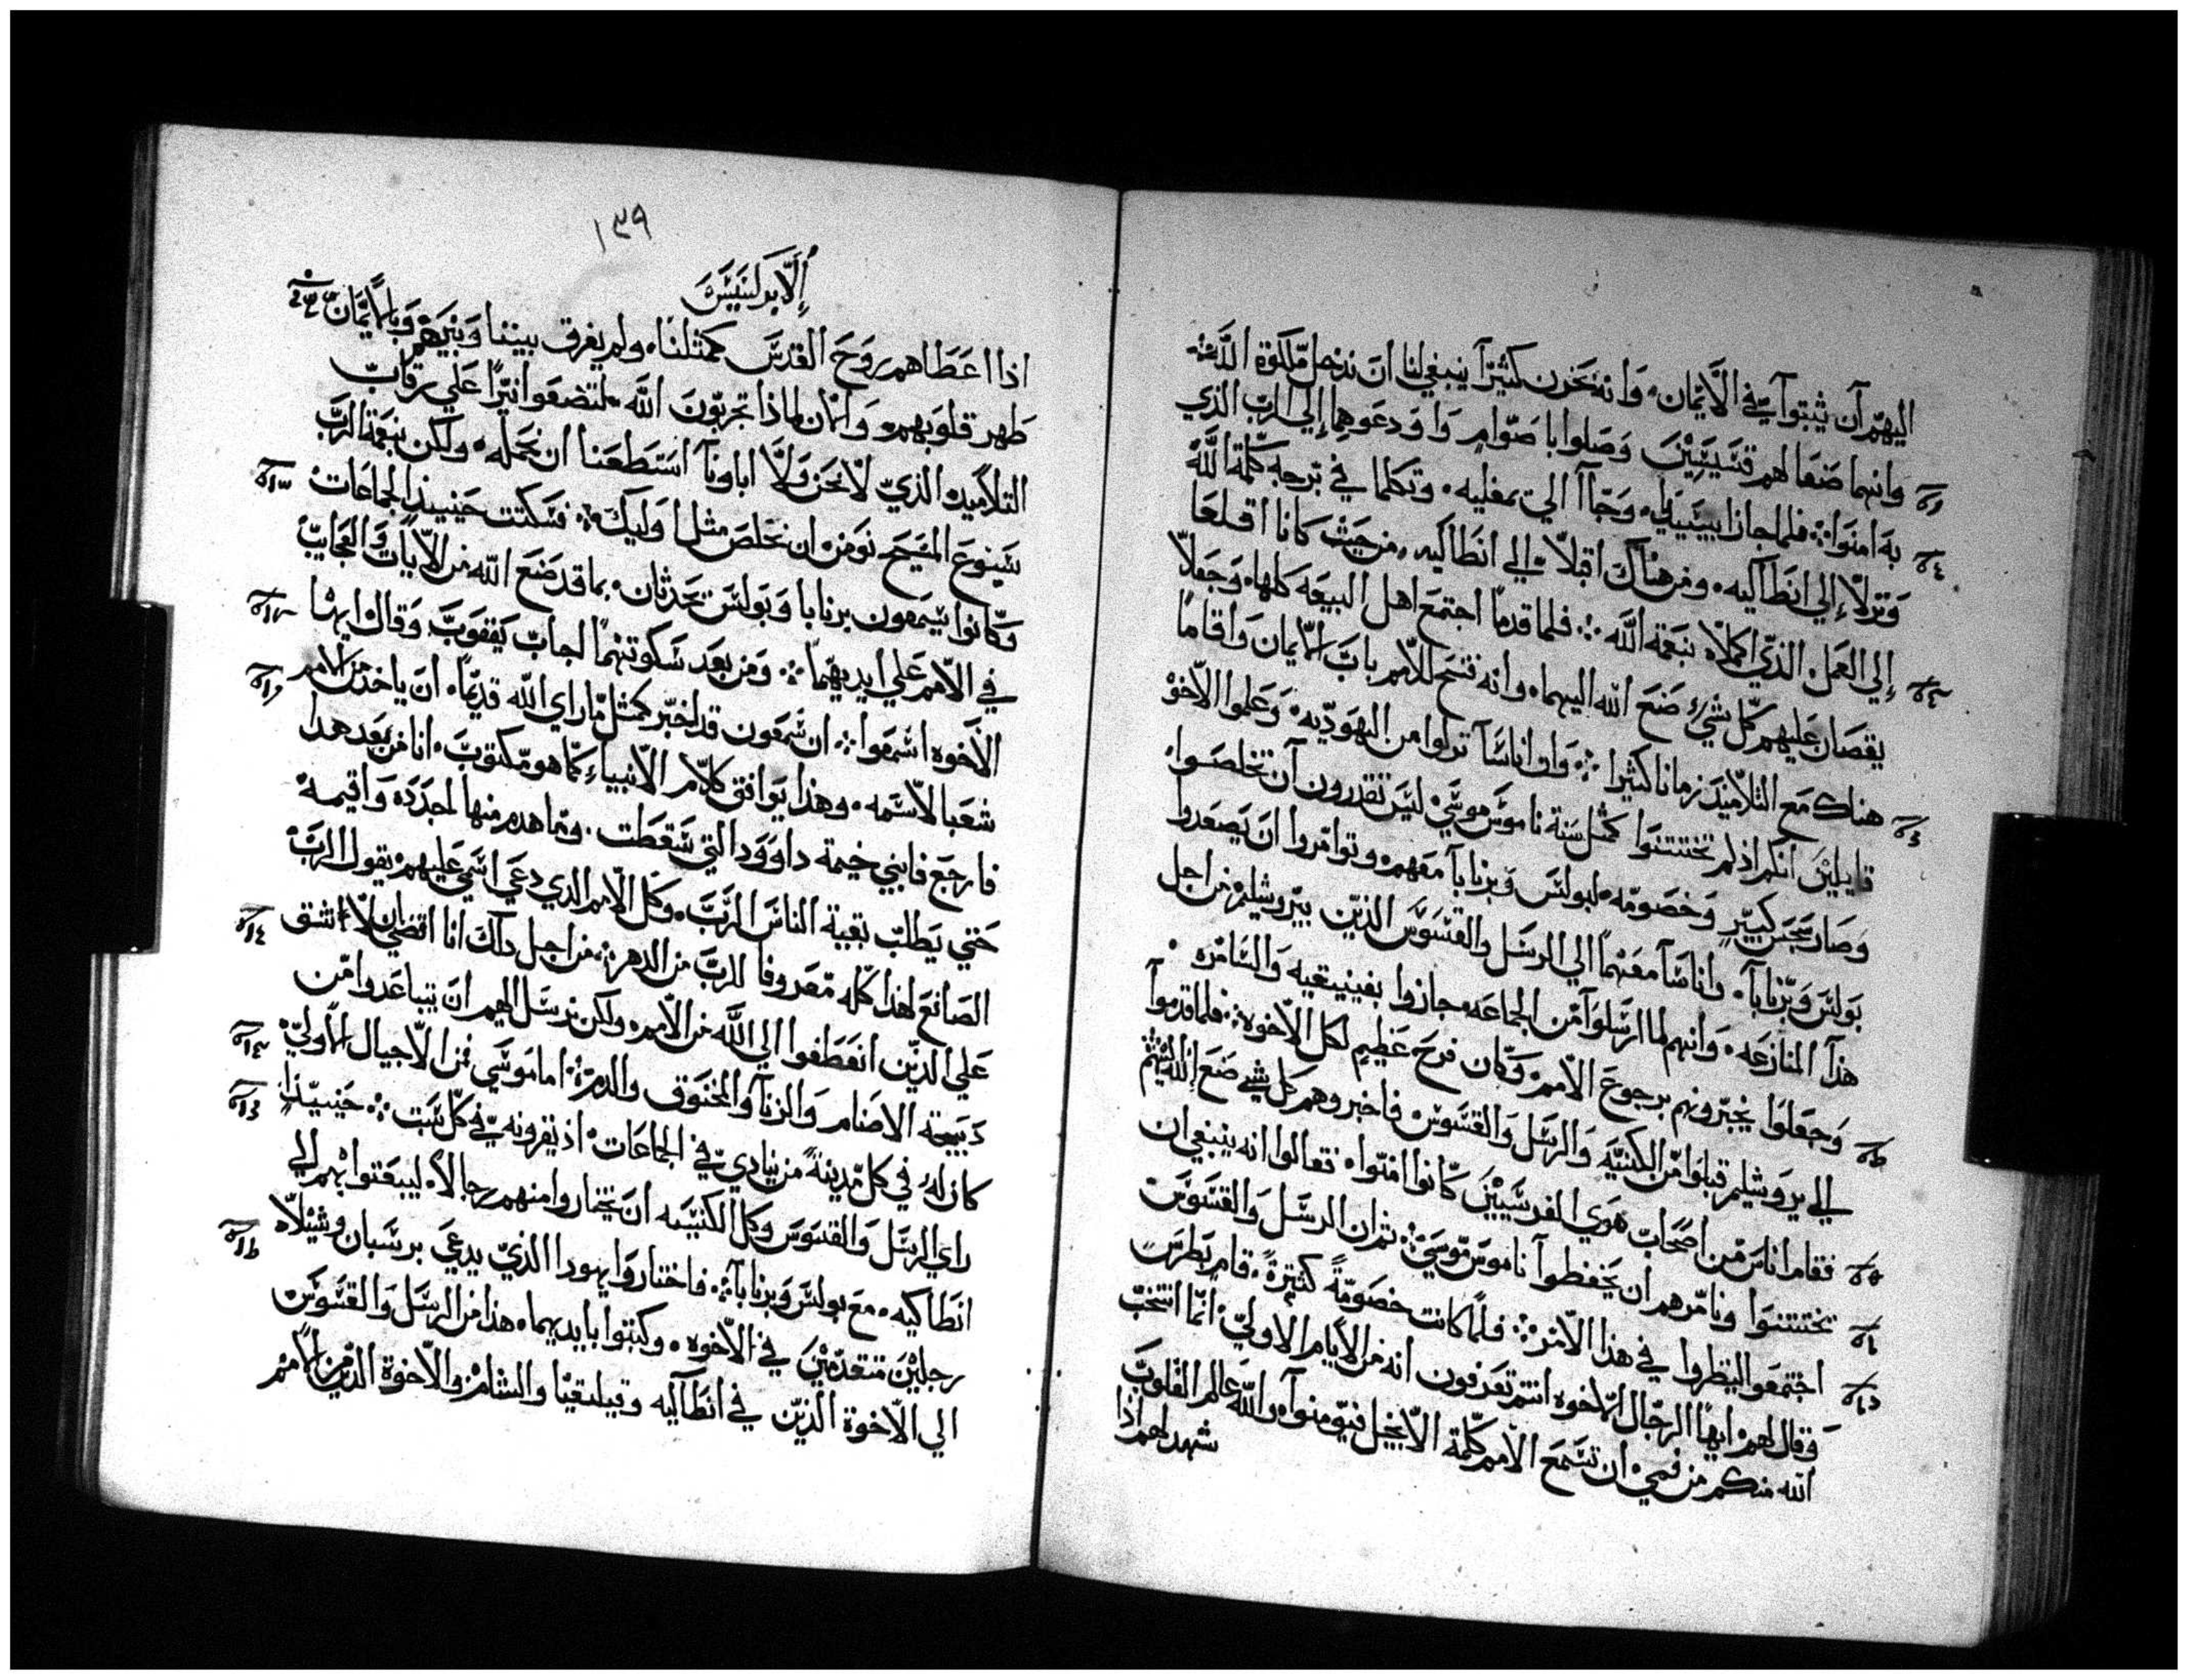 اليهم آن يثبتوآ في الآيمان، وَانه بحَزن كثيرآ ينبغي لنا ان ندخل ملكوة اللَّه
وانهما ضعَا لهم قسَّيسَين وَصَلوا باصَوّامٍ وَاوَدعَوهما إلى الرّب الذي
به امنوَا፥ فلما جازا بيسَيديا، وَجَاآ الي بمفليه، وَتكلما في برجه كلمة اللَّه
وَنزلآ إلى انطاليه، ومن هناك اقبلآ إلى انطاكيه، من حيَث كانا اقلعَا
إلى العَمل الذيّ اكملآه بنعَمة اللَّه፥ فلما قدمآ اجتمعَ اهل البيعَه كلها، وَجعَلآ
يقصَان عَليهم كل شيء ضنعَ اللّه اليهما، وانه فتح للآمم بابَ الآيمان وَاقامآ
هناك مَع التلآميَذ زمانا كثيرا፥ وَان اناسَآ نزلوا من اليهوديه، وَعَلموا الآخوَه
قايلينَ انكم اذ لم تختتنوَا كمثل سَنة ناموسَ موسَي ليسَ تقدرون آن تخلصَوا،
وصَار سَجَسَ كبير وَخصَومه لبولسَ وَبرنابآ معَهم، وتوامروا انَ يَصعَدوا
بَولسَ وَبرنابآ، واناسَآ معَهمآ الي الرسَل والقسَوسَ الذينَ بيروَشليم من اجل
هذآ المنازعَه، وَانهم لما ارسَلوَآ من الجماعَه، جازوا بفينيقيه وَالسَامره
وَجعَلوَا يخبرونهم برجوعَ الآمم، وكان فرحَ عَظيم لكل الآخوه፥ فلما قدموآ
الي يروشليم قبلوَا من الكنيسَه وَالرسَل وَالقسَوسَ فاخبروهم كل شي ضنعَ اللّه اليهم
فقام اناسَ من اصَحَاب هَوي الفرسَيينَ كانوا امنوا، فقالوا انه ينبغي ان
تختتنوَا ونامرهم ان يَحَفظوآ ناموسَ موسَي፥ ثم ان الرسَل وَالقسَوسَ
اجتمعَوا لينظروا في هذا الآمر፥ فلما كانت خصَومةً كثيرةً، قام بَطرسَ
وَقال لهم ايهآ الرجال الآخوه انتم تعَرفون انه من الآيام الاوليّ انما انتخبَ
اللّه منكم من فمي ان تسَمعَ الآمم كلمة الآنجيل فيومنوآ، واللّه عَالم القلوبَ
شهد لهم اذا
١٣٩
إلآبركسَيسَ
اذا اعَطاهم رَوَحَ القدسَ كمثلنا، ولم يفرق بيننا وَبينهم وَبالآيمان
طهر قلوَبهم، وَالآن لماذا تجرّبونَ اللَّه لتضعَوا نيرًا عَلي رقابَ
التلآميذ الذيّ لآ نحَن وَلآ اباونآ اسَتطعَنا ان نحَمله، ولكن بنعَمة الربَّ
يَسَوعَ المسَيحَ نوَمن ان نخلصَ مثل اوَليك፥ فسَكتت حَينيذ الجماعَات
وَكانوا يسَمعَون برنابا وَبَولسَ تحَدثان، بما قد ضنعَ اللّه من الآيات وَالعَجايبَ
في الآمم عَلي ايديهمآ፥ وَمن بعَد سَكوتهمآ اجابَ يَعَقوَبَ وَقال ايهآ
الآخوه اسَمعَوا፥ ان سَمعَون قد اخبر كمثل ما راي اللّه قديمًا، ان ياخذ من الآمم
شعَبا لآسَمه، وهذا يوَافق كلآم الانبياء كما هو مكتوبَ، انا من بَعَد هدا
فارجَع فابني خيمة داوَود التي سَقطَت، وما هدم منها اجدَدَه وَاقيمه
حَتي يَطلب بَقية الناسَ الربَّ، وَكل الآمم الدي دعَي اسَمي عَليهم، يقول الربَّ
الصَانعَ لهذا كله مَعَروفا للربَّ من الدهر፥ من اجل دلك انا اقضي ان لآ نشق
عَلي الدينَ انعَطفوا الي اللَّه من الآمم، ولكن نرسَل اليهم ان يَتباعَدوا من
ذبيحة الاصَنام وَالزنآ والمخنوَق والدم፥ اما موَسَي فمن الآجيال الآوليّ،
كان له في كل مدينةً من ينادي في الجماعَات، اذ يقرونه في كل سَبت፥ حَينيذ
راي الرسَل وَالقسَوسَ وكل الكنيسَه انَ يَختاروا منهم رجالآ، ليبعَتوا بهم الي
انطاكيه، معَ بولسَ وَبرنابآ፥ فاختاروَا يهودا الذيّ يدعَي برسَبان وشيلآ
رجلينَ متقدمينَ في الآخوه، وكتبوا بايديهما، هذا من الرسَل وَالقسَوسَ
الي الآخوة الذينَ في انطاآليه وقيلقيا والشام، والآخوة الذين من الآمم